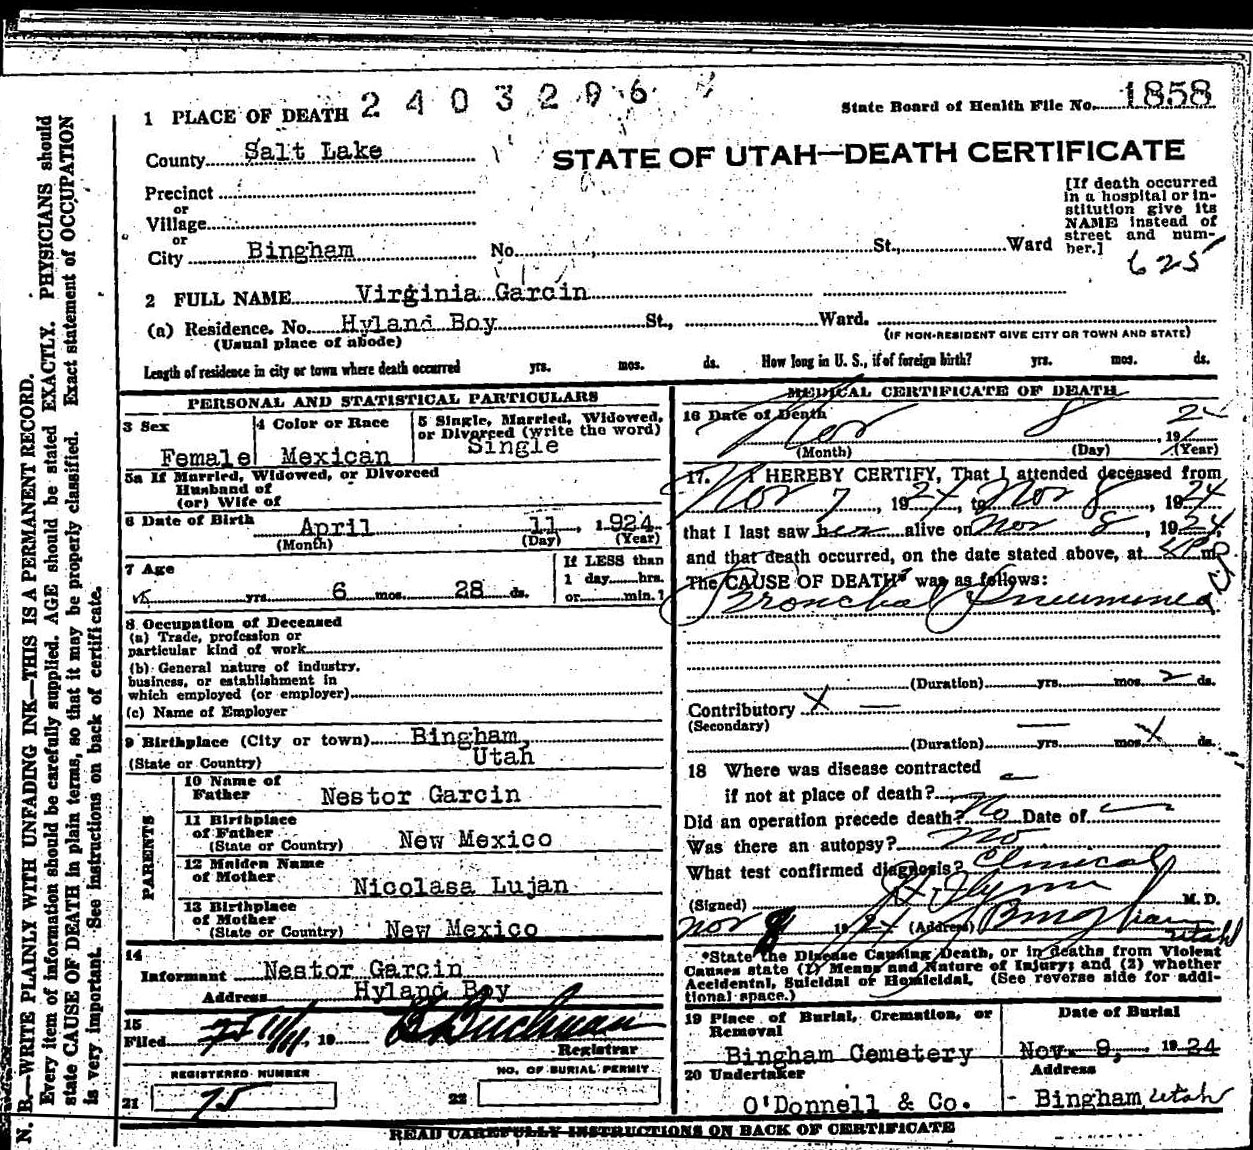 2403296
State Board of Health File No. 1858
1 PLACE OF DEATH
County Salt Lake
STATE OF UTAH—DEATH CERTIFICATE
Precinct
or
Village
or
City Bingham No. St., Ward
[If death occurred
in a hospital or in-
stitution give its
NAME instead of
street and num-
ber.]
625
2 FULL NAME Virginia Garcin
(a) Residence. No. Hyland Boy St., Ward.
(Usual place of abode) (IF NON-RESIDENT GIVE CITY OR TOWN AND STATE)
Length of residence in city or town where death occurred yrs. mos. ds. How long in U. S., if of foreign birth? yrs. mos. ds.
PERSONAL AND STATISTICAL PARTICULARS
3 Sex Female
4 Color or Race Mexican
5 Single, Married, Widowed,
or Divorced (write the word)
Single
5a If Married, Widowed, or Divorced
Husband of
(or) Wife of
6 Date of Birth April 11, 1924
(Month) (Day) (Year)
7 Age
yrs. 6 mos. 28 ds.
If LESS than
1 day hrs.
or min.?
8 Occupation of Deceased
(a) Trade, profession or
particular kind of work
(b) General nature of industry,
business, or establishment in
which employed (or employer)
(c) Name of Employer
9 Birthplace (City or town) Bingham,
(State or Country) Utah
PARENTS
10 Name of
Father Nestor Garcin
11 Birthplace
of Father
(State or Country) New Mexico
12 Maiden Name
of Mother Nicolasa Lujan
13 Birthplace
of Mother
(State or Country) New Mexico
14
Informant Nestor Garcin
Address Hyland Boy
15
Filed 11/11 19 Buchman
Registrar
REGISTERED NUMBER
21 75
NO. OF BURIAL PERMIT
22
MEDICAL CERTIFICATE OF DEATH
16 Date of Death
Nov 8, 1924
(Month) (Day) (Year)
17. I HEREBY CERTIFY, That I attended deceased from
Nov 7, 1924, to Nov 8, 1924
that I last saw her alive on Nov 8, 1924,
and that death occurred, on the date stated above, at m.
The CAUSE OF DEATH* was as follows:
Bronchial Pneumonea
(Duration) yrs. mos. 2 ds.
Contributory X —
(Secondary)
(Duration) — yrs. mos. X ds.
18 Where was disease contracted
if not at place of death? —
Did an operation precede death? No Date of —
Was there an autopsy? No
What test confirmed diagnosis? Clinical
(Signed) H. Flynn M. D.
Nov 8 1924 (Address) Bingham Utah
*State the Disease Causing Death, or in deaths from Violent
Causes state (1) Means and Nature of Injury; and (2) whether
Accidental, Suicidal or Homicidal. (See reverse side for addi-
tional space.)
19 Place of Burial, Cremation, or
Removal
Bingham Cemetery
Date of Burial
Nov. 9, 1924
20 Undertaker
O'Donnell & Co.
Address
Bingham, Utah
READ CAREFULLY INSTRUCTIONS ON BACK OF CERTIFICATE
N. B.—WRITE PLAINLY WITH UNFADING INK—THIS IS A PERMANENT RECORD.
Every item of information should be carefully supplied. AGE should be stated EXACTLY. PHYSICIANS should
state CAUSE OF DEATH in plain terms, so that it may be properly classified. Exact statement of OCCUPATION
is very important. See instructions on back of certificate.